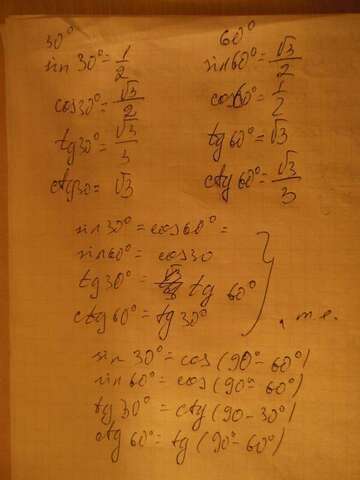 30°
sin 30° = 1/2
cos 30° = √3/2
tg 30° = √3/3
ctg 30 = √3
60°
sin 60° = √3/2
cos 60° = 1/2
tg 60° = √3
ctg 60° = √3/3
sin 30° = cos 60° =
sin 60° = cos 30
tg 30° = tg 60°
ctg 60° = tg 30°
, т.е.
sin 30° = cos (90° - 60°)
sin 60° = cos (90° - 60°)
tg 30° = ctg (90 - 30°)
ctg 60° = tg (90° - 60°)